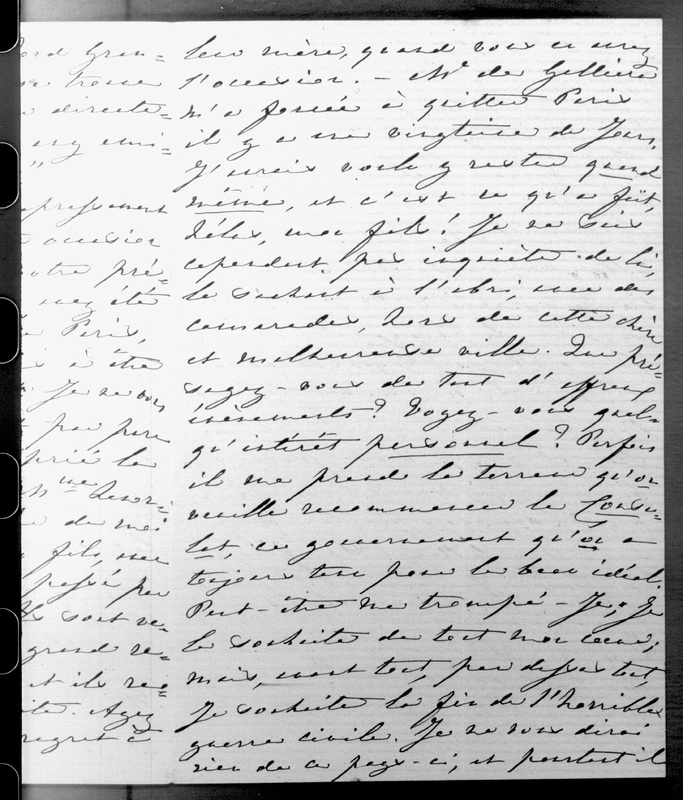 Lord Gran=
se trouve
directe=
"
occasion
votre pré=
avez été
Paris,
à être
Je ne vous
pas pere
prié le
de moi
fils, une
passé par
Ils sont re=
grand re=
et ils re=
ite. Ayez
regret à
leur mère, quand vous en aurez
l'occasion. – Mr de Galliera
m'a forcée à quitter Paris
il y a une vingtaine de jours,
J'aurais voulu y rester quand
même, et c'est ce qu'a fait,
hélas, mon fils! Je ne suis
cependant pas inquiète de lui,
le sachant à l'abri, avec des
camarades, hors de cette chère
et malheureuse ville. Que pré=
sagez-vous de tout d'affreux
événements? Voyez-vous quel=
qu'intérêt personnel? Parfois
il me prend la terreur qu'on
veuille recommencer le Consu=
lat, ce gouvernement qu'on a
toujours tenu pour le beau idéal.
Peut-être me trompé-Je; Je
le souhaite de tout mon cœur;
mais, avant tout, par dessus tout,
Je souhaite la fin de l'horrible
guerre civile. Je ne vous dirai
rien de ce pays-ci, et pourtant il